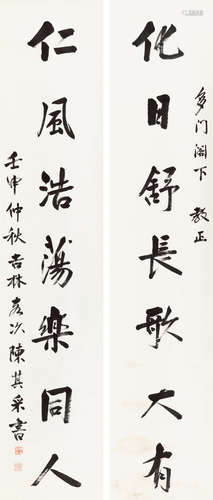 化日舒長歌大有
多门阁下 教正
仁風浩蕩樂同人
壬申仲秋吉林客次陳其采書